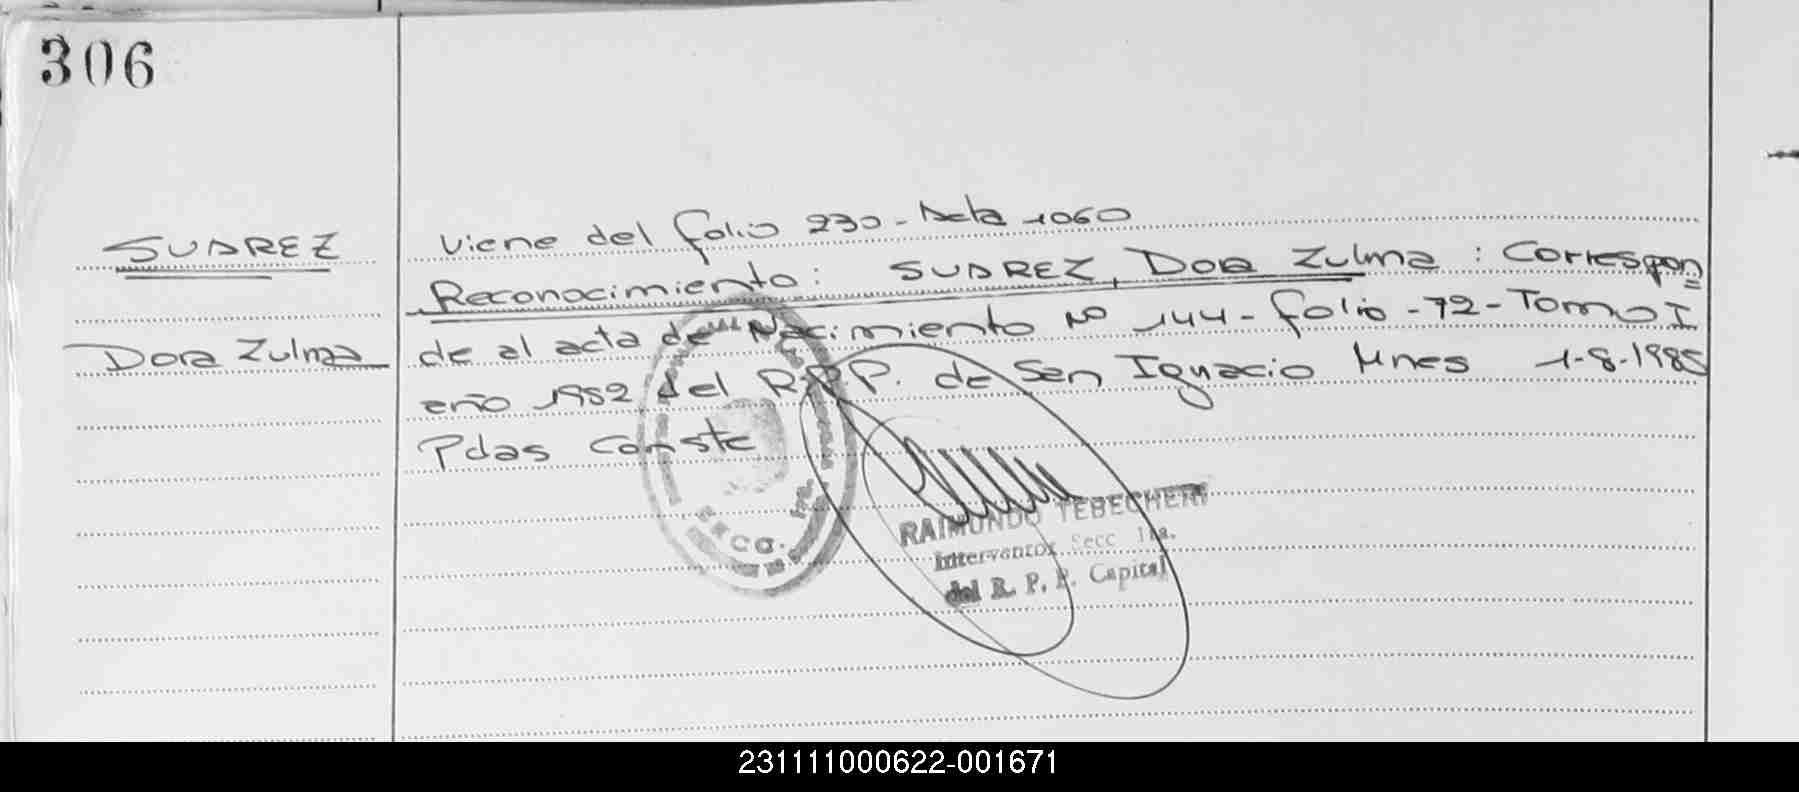 306
SUAREZ
Dora Zulma
Viene del folio 230 - Acta 1060
Reconocimiento: SUAREZ, Dora Zulma : Correspon=
de al acta de Nacimiento Nº 144 - folio - 72 - Tomo I
año 1952 del R.P.P. de San Ignacio Mnes 1-8-1985
Pdas Conste
RAIMUNDO TEBECHERI
Interventor Secc 1ra.
del R. P. P. Capital
231111000622-001671